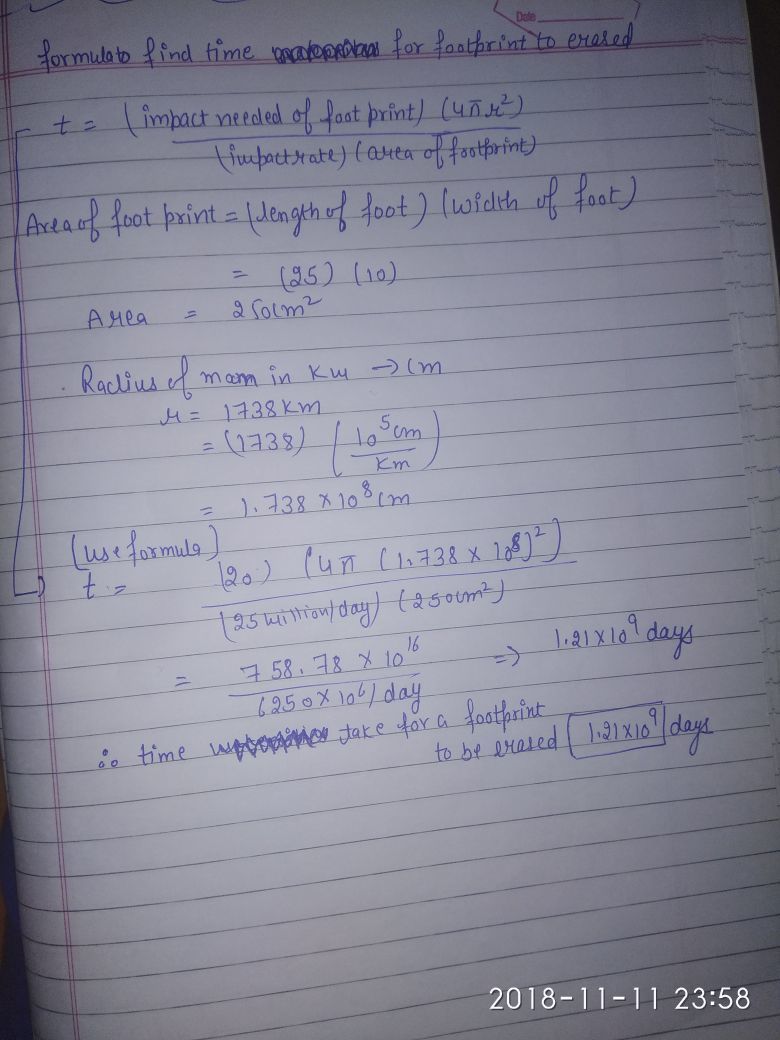 Date
formula to find time for footprint to erased
t = (impact needed of foot print) (4πr²)
(impact rate) (area of footprint)
Area of foot print = (length of foot) (width of foot)
= (25) (10)
Area = 250cm²
Radius of moon in Km → cm
r = 1738 KM
= (1738) (10⁵ cm
Km)
= 1.738 × 10⁸ cm
(use formula)
t = (20) (4π (1.738 × 10⁸)²)
(25 million/day) (250cm²)
= 758.78 × 10¹⁶ ⇒ 1.21×10⁹ days
6250×10⁶/day
∴ time take for a footprint
to be erased 1.21×10⁹ days
2018-11-11 23:58